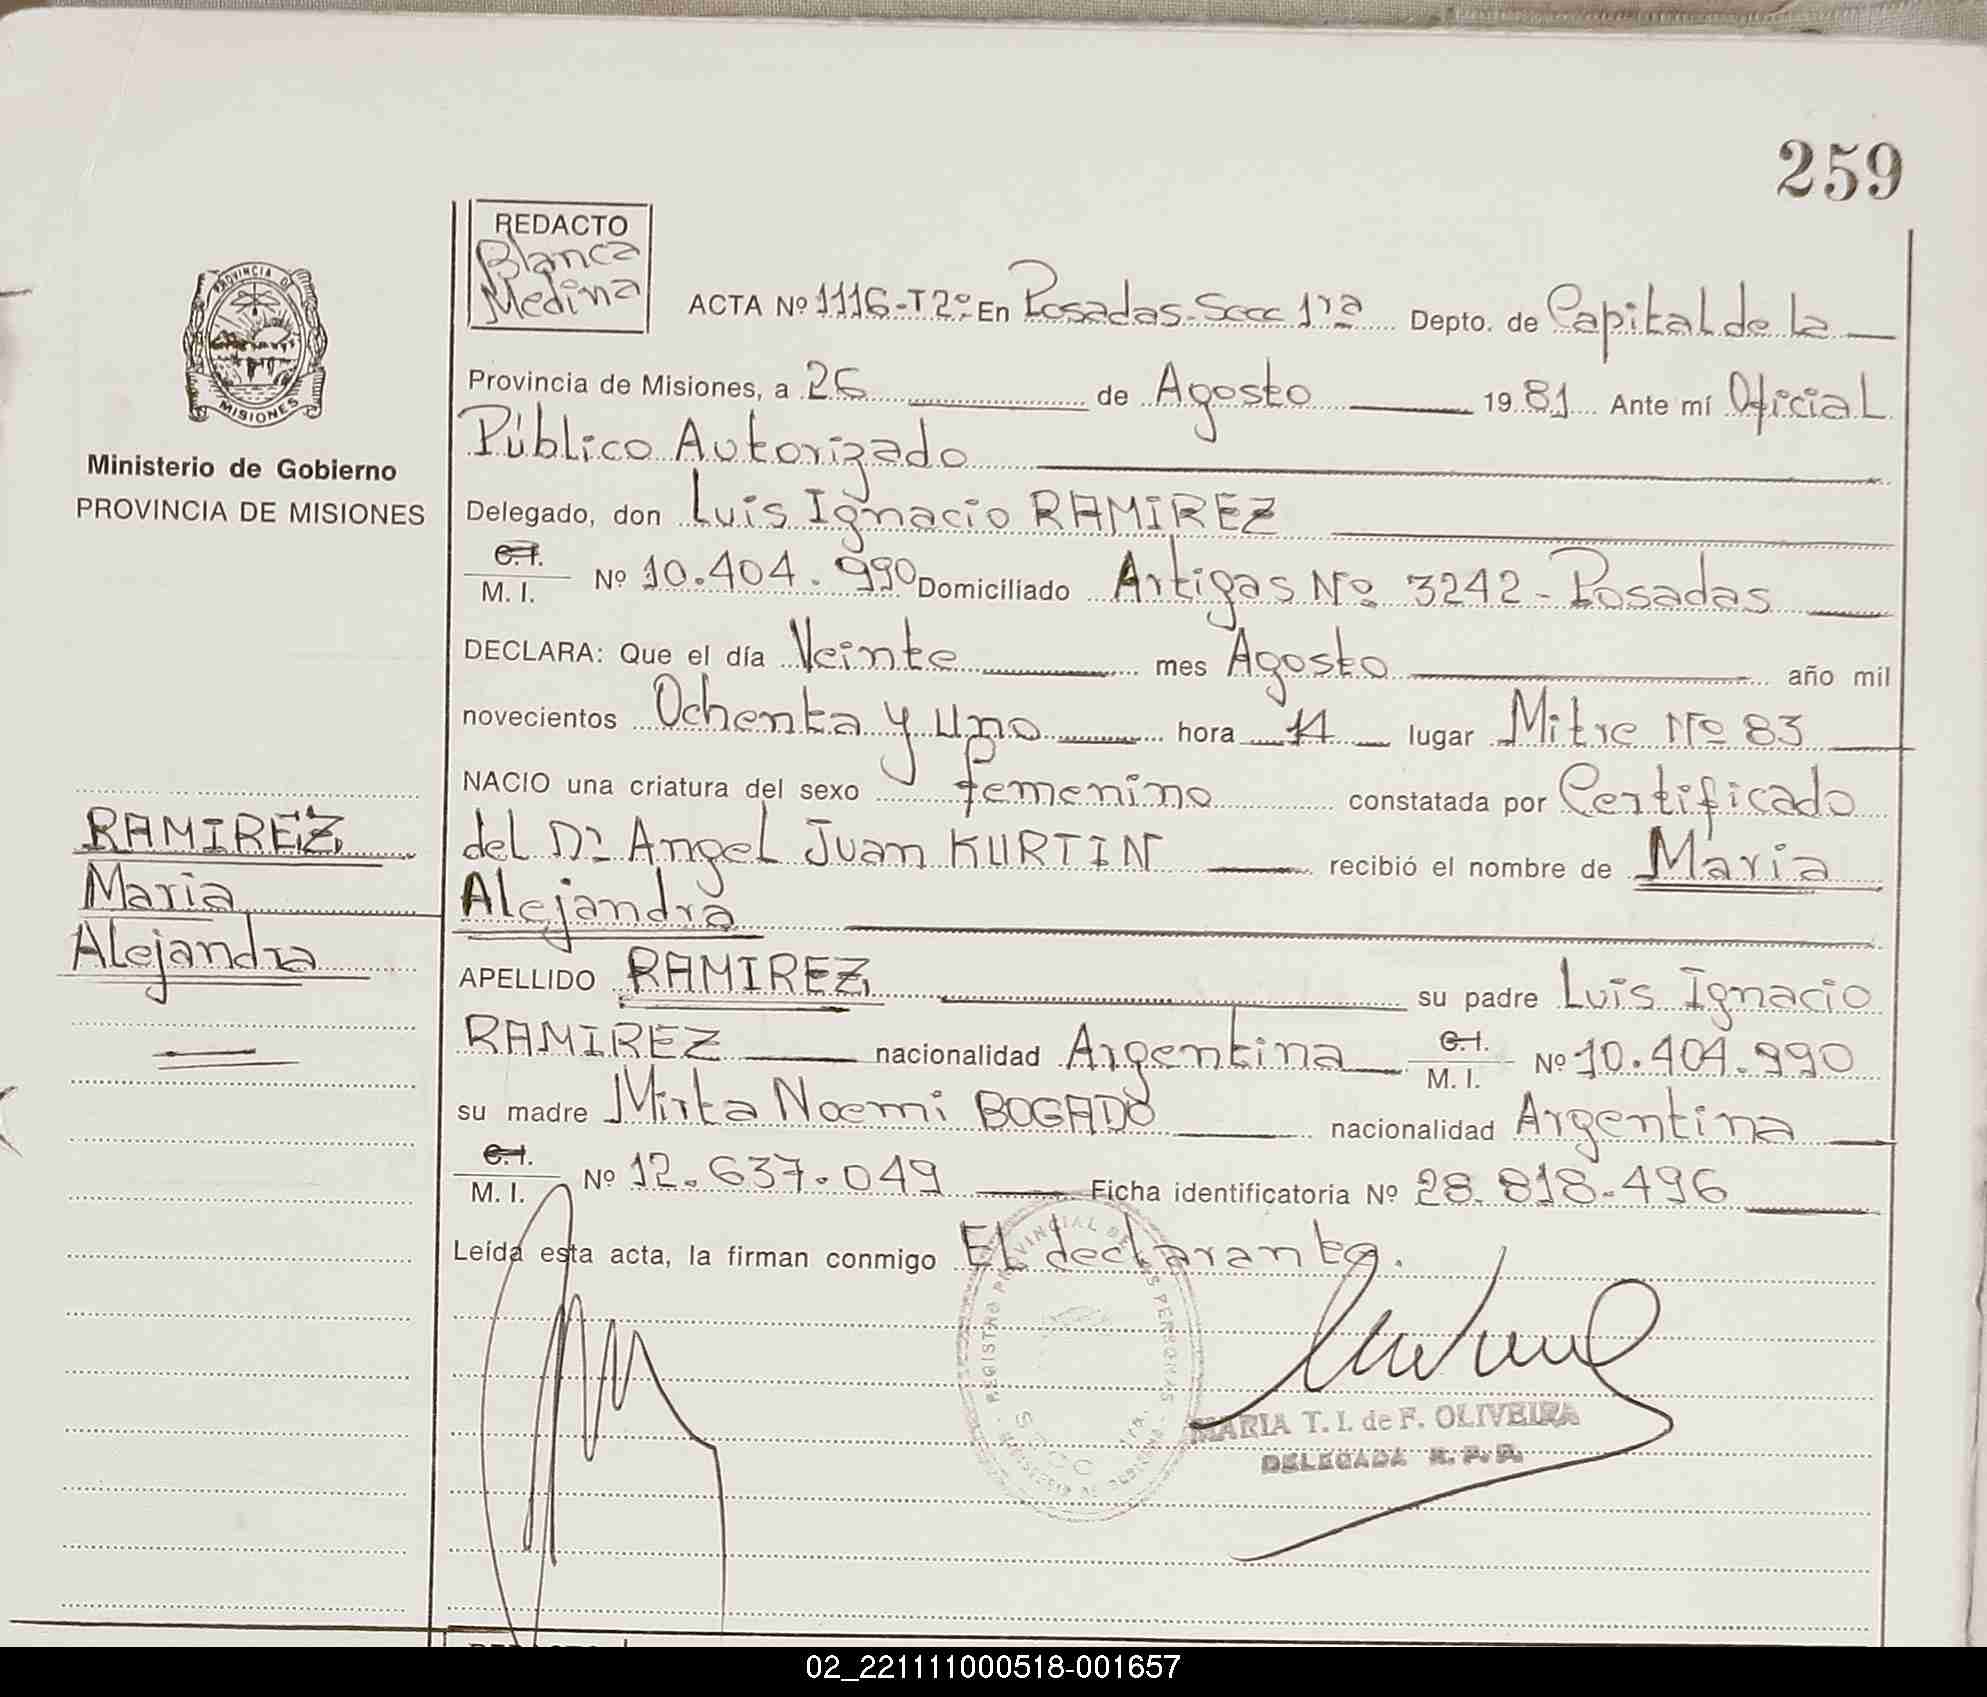 259
REDACTO
Blanca
Medina
PROVINCIA DE
MISIONES
Ministerio de Gobierno
PROVINCIA DE MISIONES
ACTA Nº 1116-T2º En Posadas-Secc 1ra Depto. de Capital de la
Provincia de Misiones, a 26 de Agosto 1981 Ante mí Oficial
Público Autorizado
Delegado, don Luis Ignacio RAMIREZ
C.I.
M. I. Nº 10.404.990 Domiciliado Artigas Nº 3242-Posadas
DECLARA: Que el día Veinte mes Agosto año mil
novecientos Ochenta y uno hora 14 lugar Mitre Nº 83
NACIO una criatura del sexo femenino constatada por Certificado
del Dr Angel Juan KURTIN recibió el nombre de Maria
Alejandra
APELLIDO RAMIREZ, su padre Luis Ignacio
RAMIREZ nacionalidad Argentina C.I. M. I. Nº 10.404.990
su madre Mirta Noemi BOGADO nacionalidad Argentina
C.I.
M. I. Nº 12.637.049 Ficha identificatoria Nº 28.818.496
Leída esta acta, la firman conmigo El declarante.
RAMIREZ,
Maria
Alejandra
REGISTRO PROVINCIAL DE LAS PERSONAS
MARIA T. I. de F. OLIVEIRA
DELEGADA R. P. P.
02_221111000518-001657